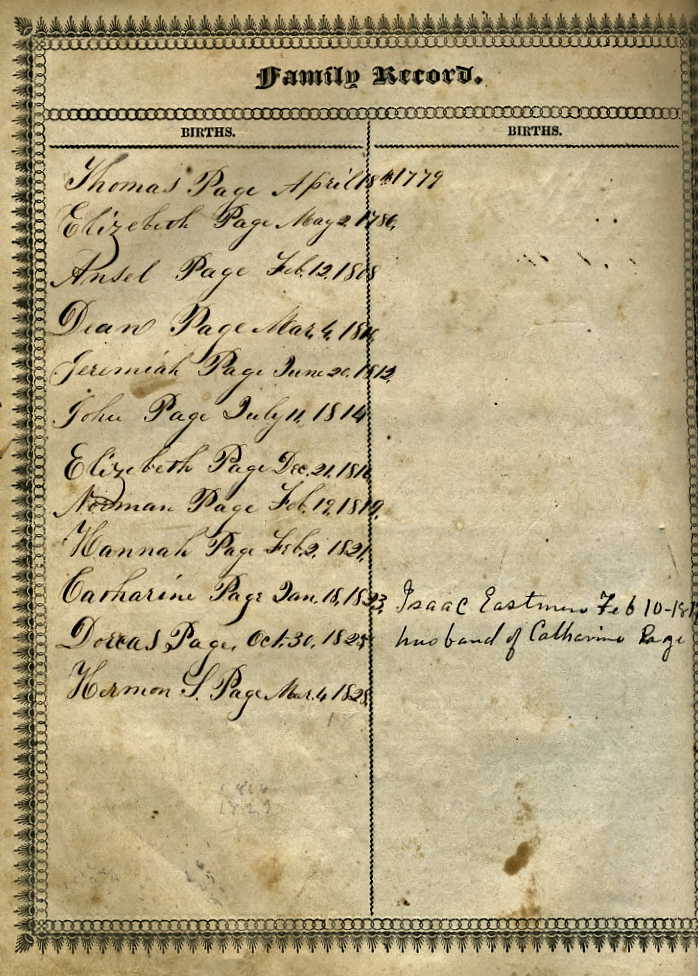 Family Record.
BIRTHS.
BIRTHS.
Thomas Page April 18th 1779
Elizebeth Page May 2, 1786,
Ansel Page Feb. 12, 1808
Dean Page Mar, 4, 1810,
Jeremiah Page June 20, 1812,
John Page July 11, 1814
Elizebeth Page Dec. 21, 1816
Norman Page Feb, 19, 1819,
Hannah Page Feb, 2, 1821,
Catharine Page Jan, 18, 1823,
Dorcas Page, Oct. 30, 1825
Hermon S. Page Mar. 4 1828
Isaac Eastman Feb 10-
husband of Catharine Page